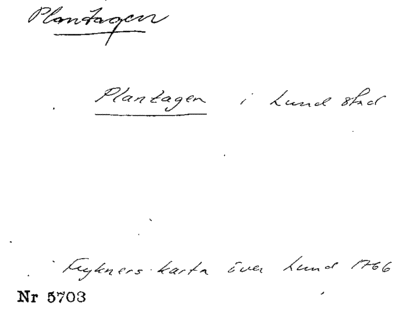 Plantagen
Plantagen i Lund stad
Frykners karta över Lund 1766
Nr 5703